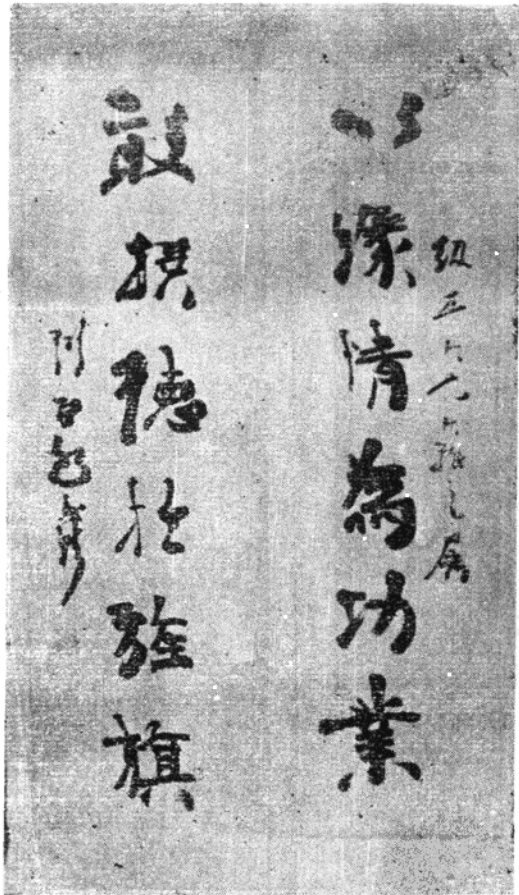 五大人大雅之屬
以緣情為功業
敢撰德於旌旗